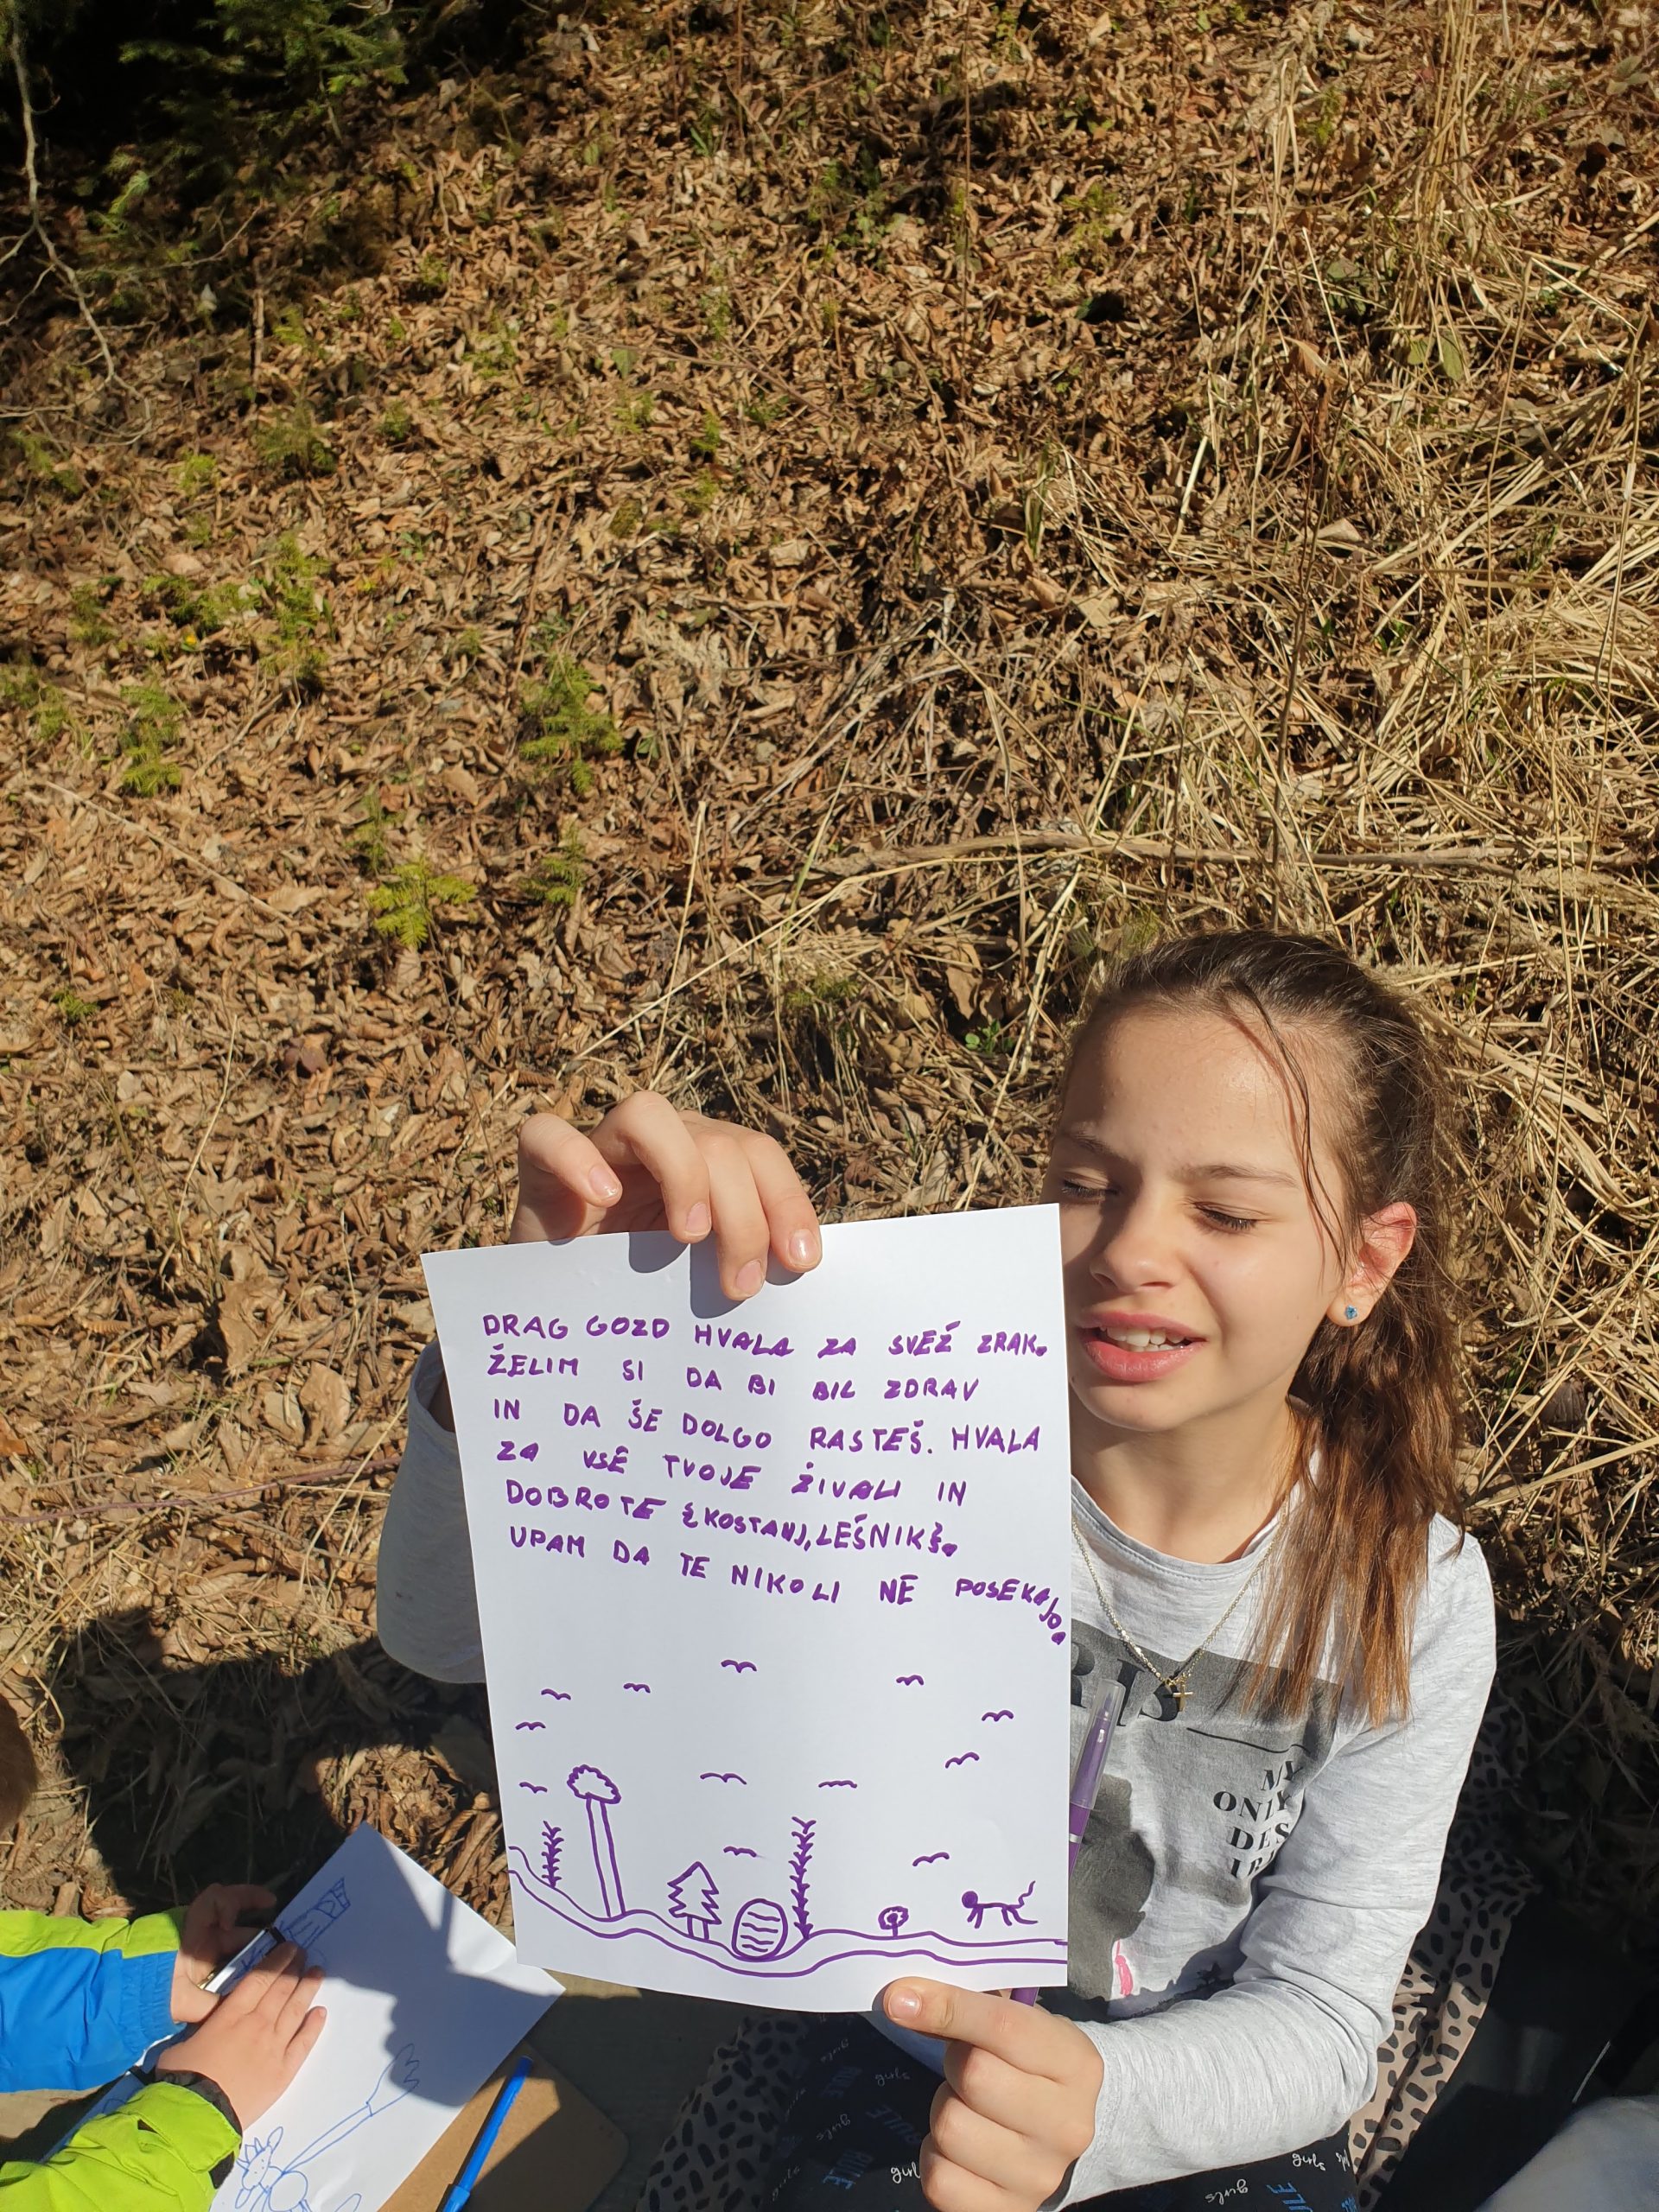 DRAG GOZD HVALA ZA SVEŽ ZRAK.
ŽELIM SI DA BI BIL ZDRAV
IN DA ŠE DOLGO RASTEŠ. HVALA
ZA VSE TVOJE ŽIVALI IN
DOBROTE {KOSTANJ, LEŠNIK}.
UPAM DA TE NIKOLI NE POSEKAJO.
MY
ONLY
DES
girls
RULE
girls
RULE
girls
girls